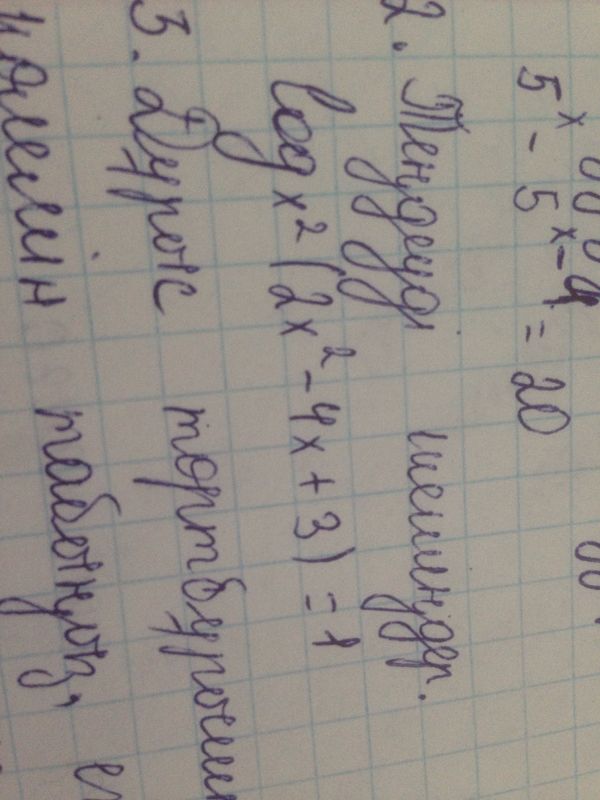 5ˣ - 5ˣ⁻¹ = 20
2. Теңдеуді шешіңдер.
log x² (2x² - 4x + 3) = 1
3. Дұрыс төртбұрыш
көлемін табыңыз, ег